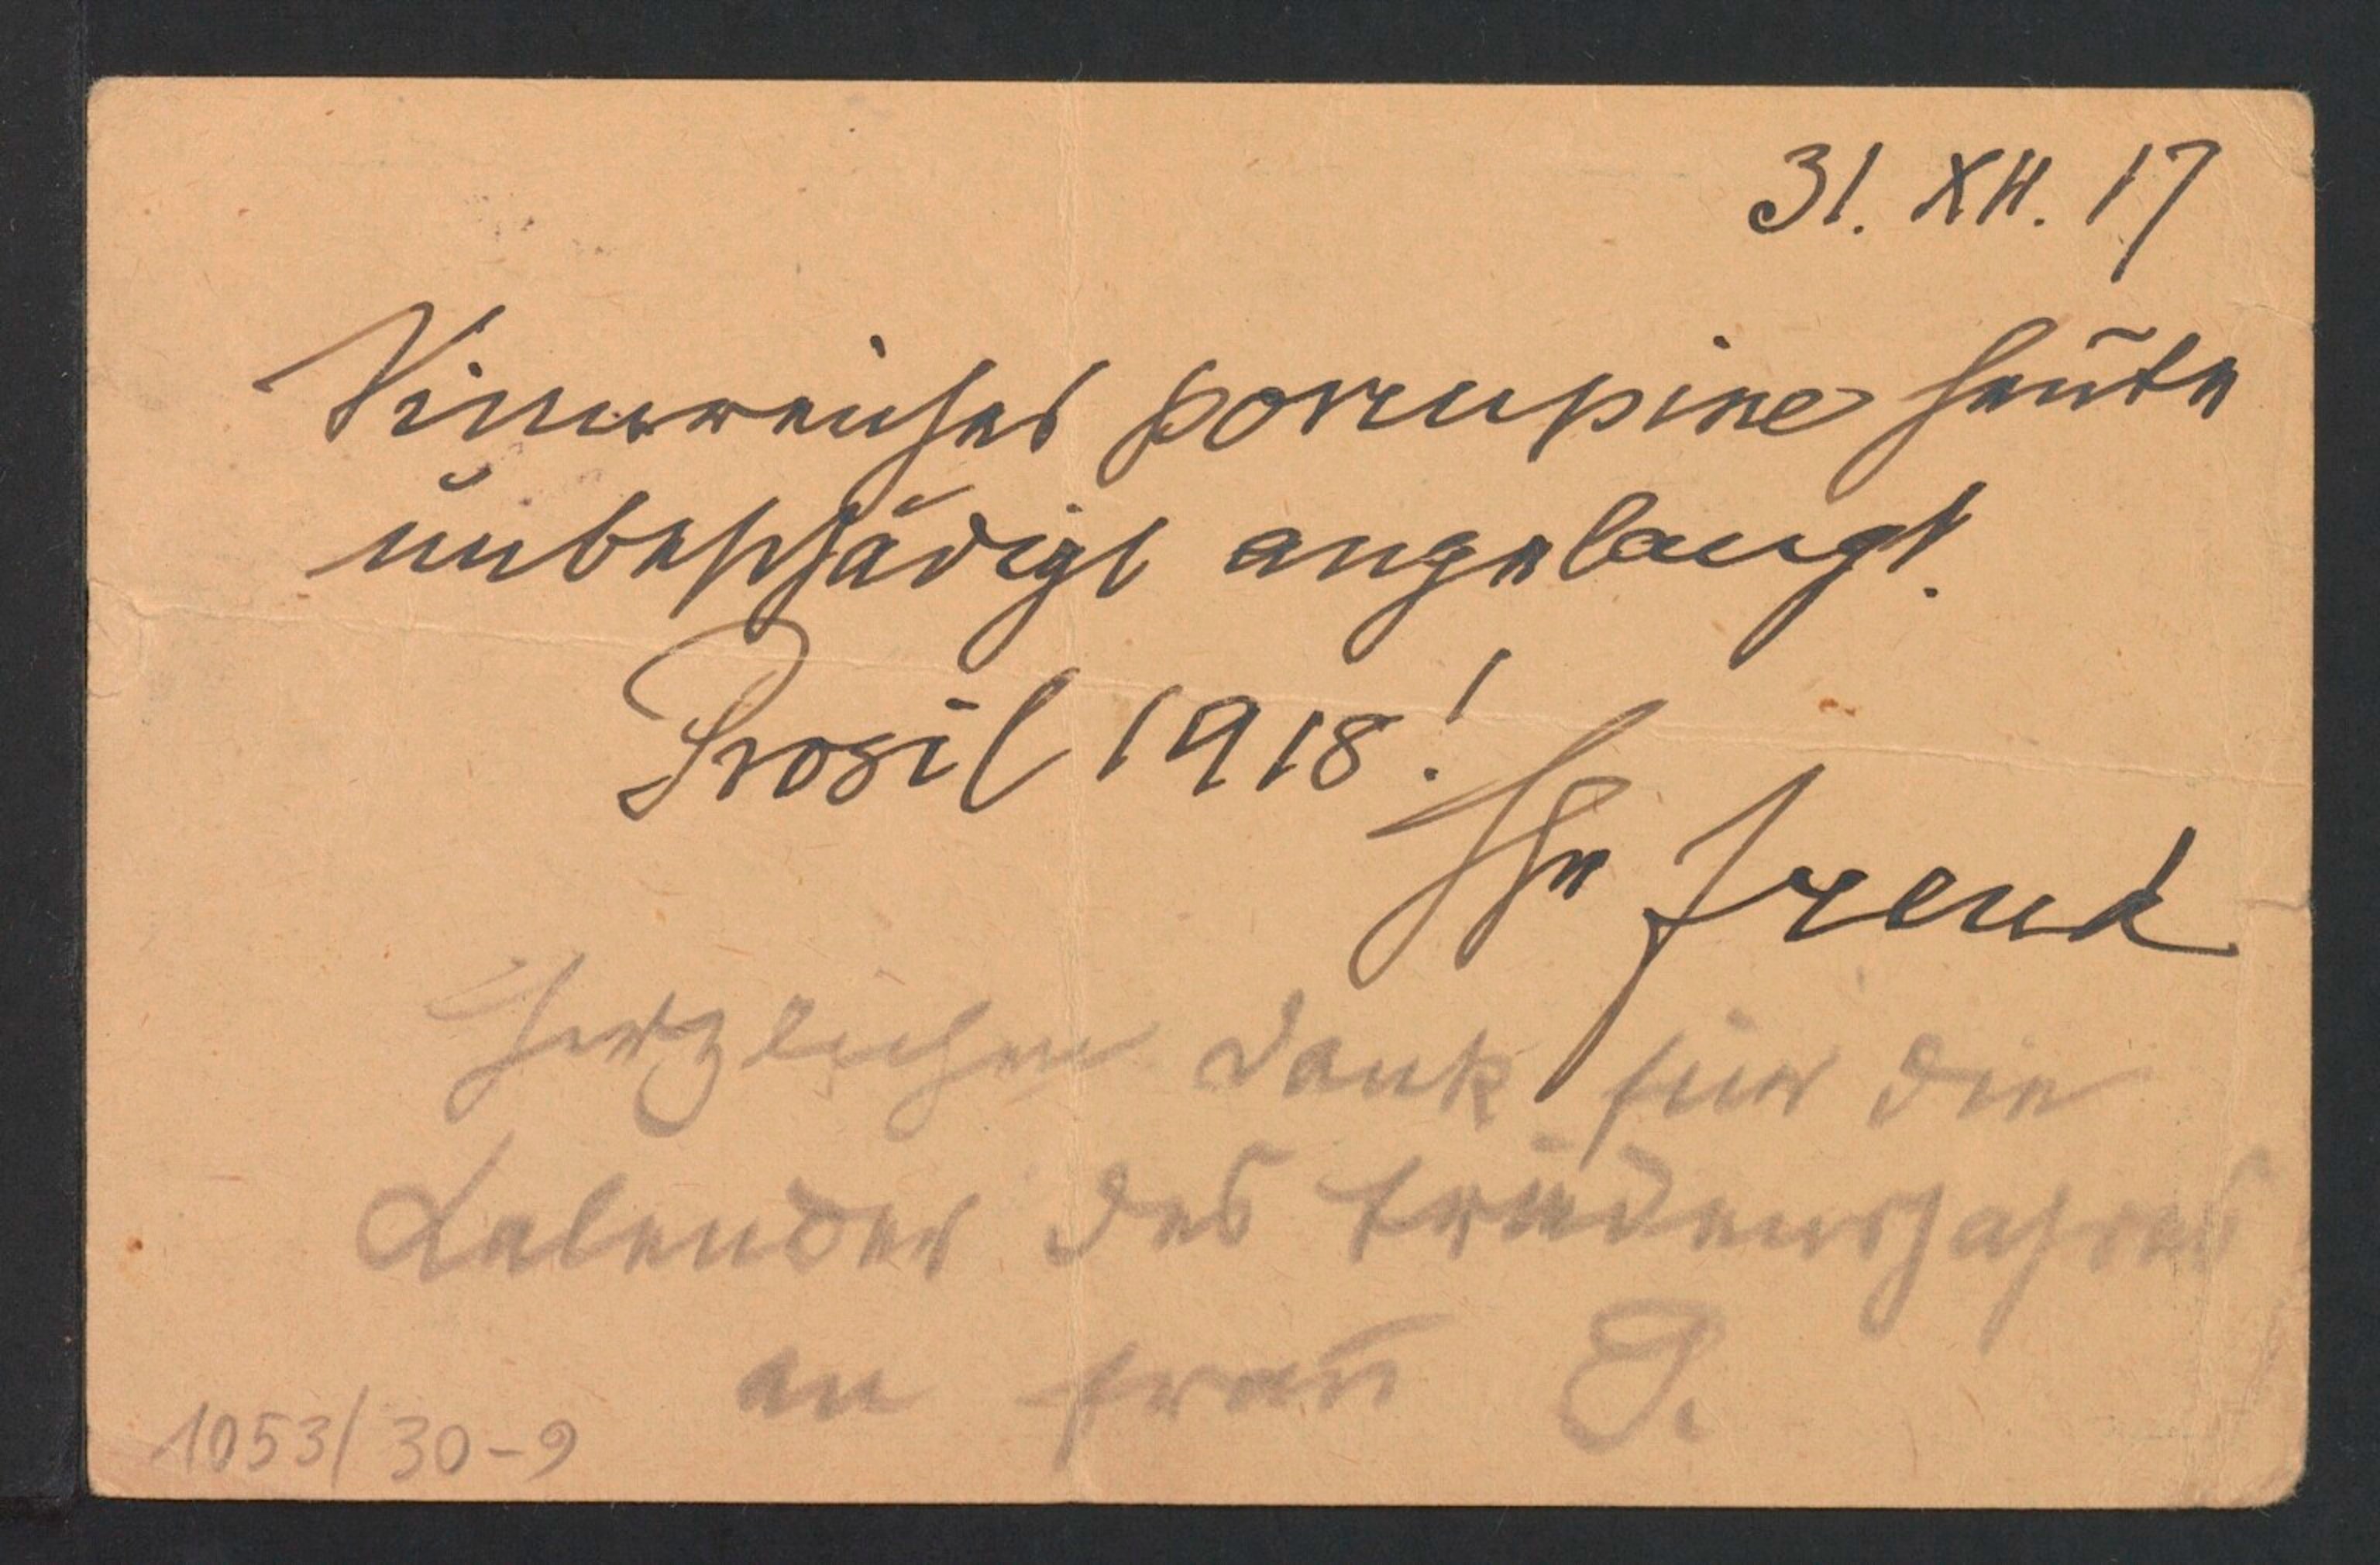 31. XII. 17
Sinnreiches porcupine heute
unbeschädigt angelangt.
Prosit 1918!
Ihr Freud
Herzlichen Dank für die
Kalender des Friedensjahres
an Frau G.
1053/30-9